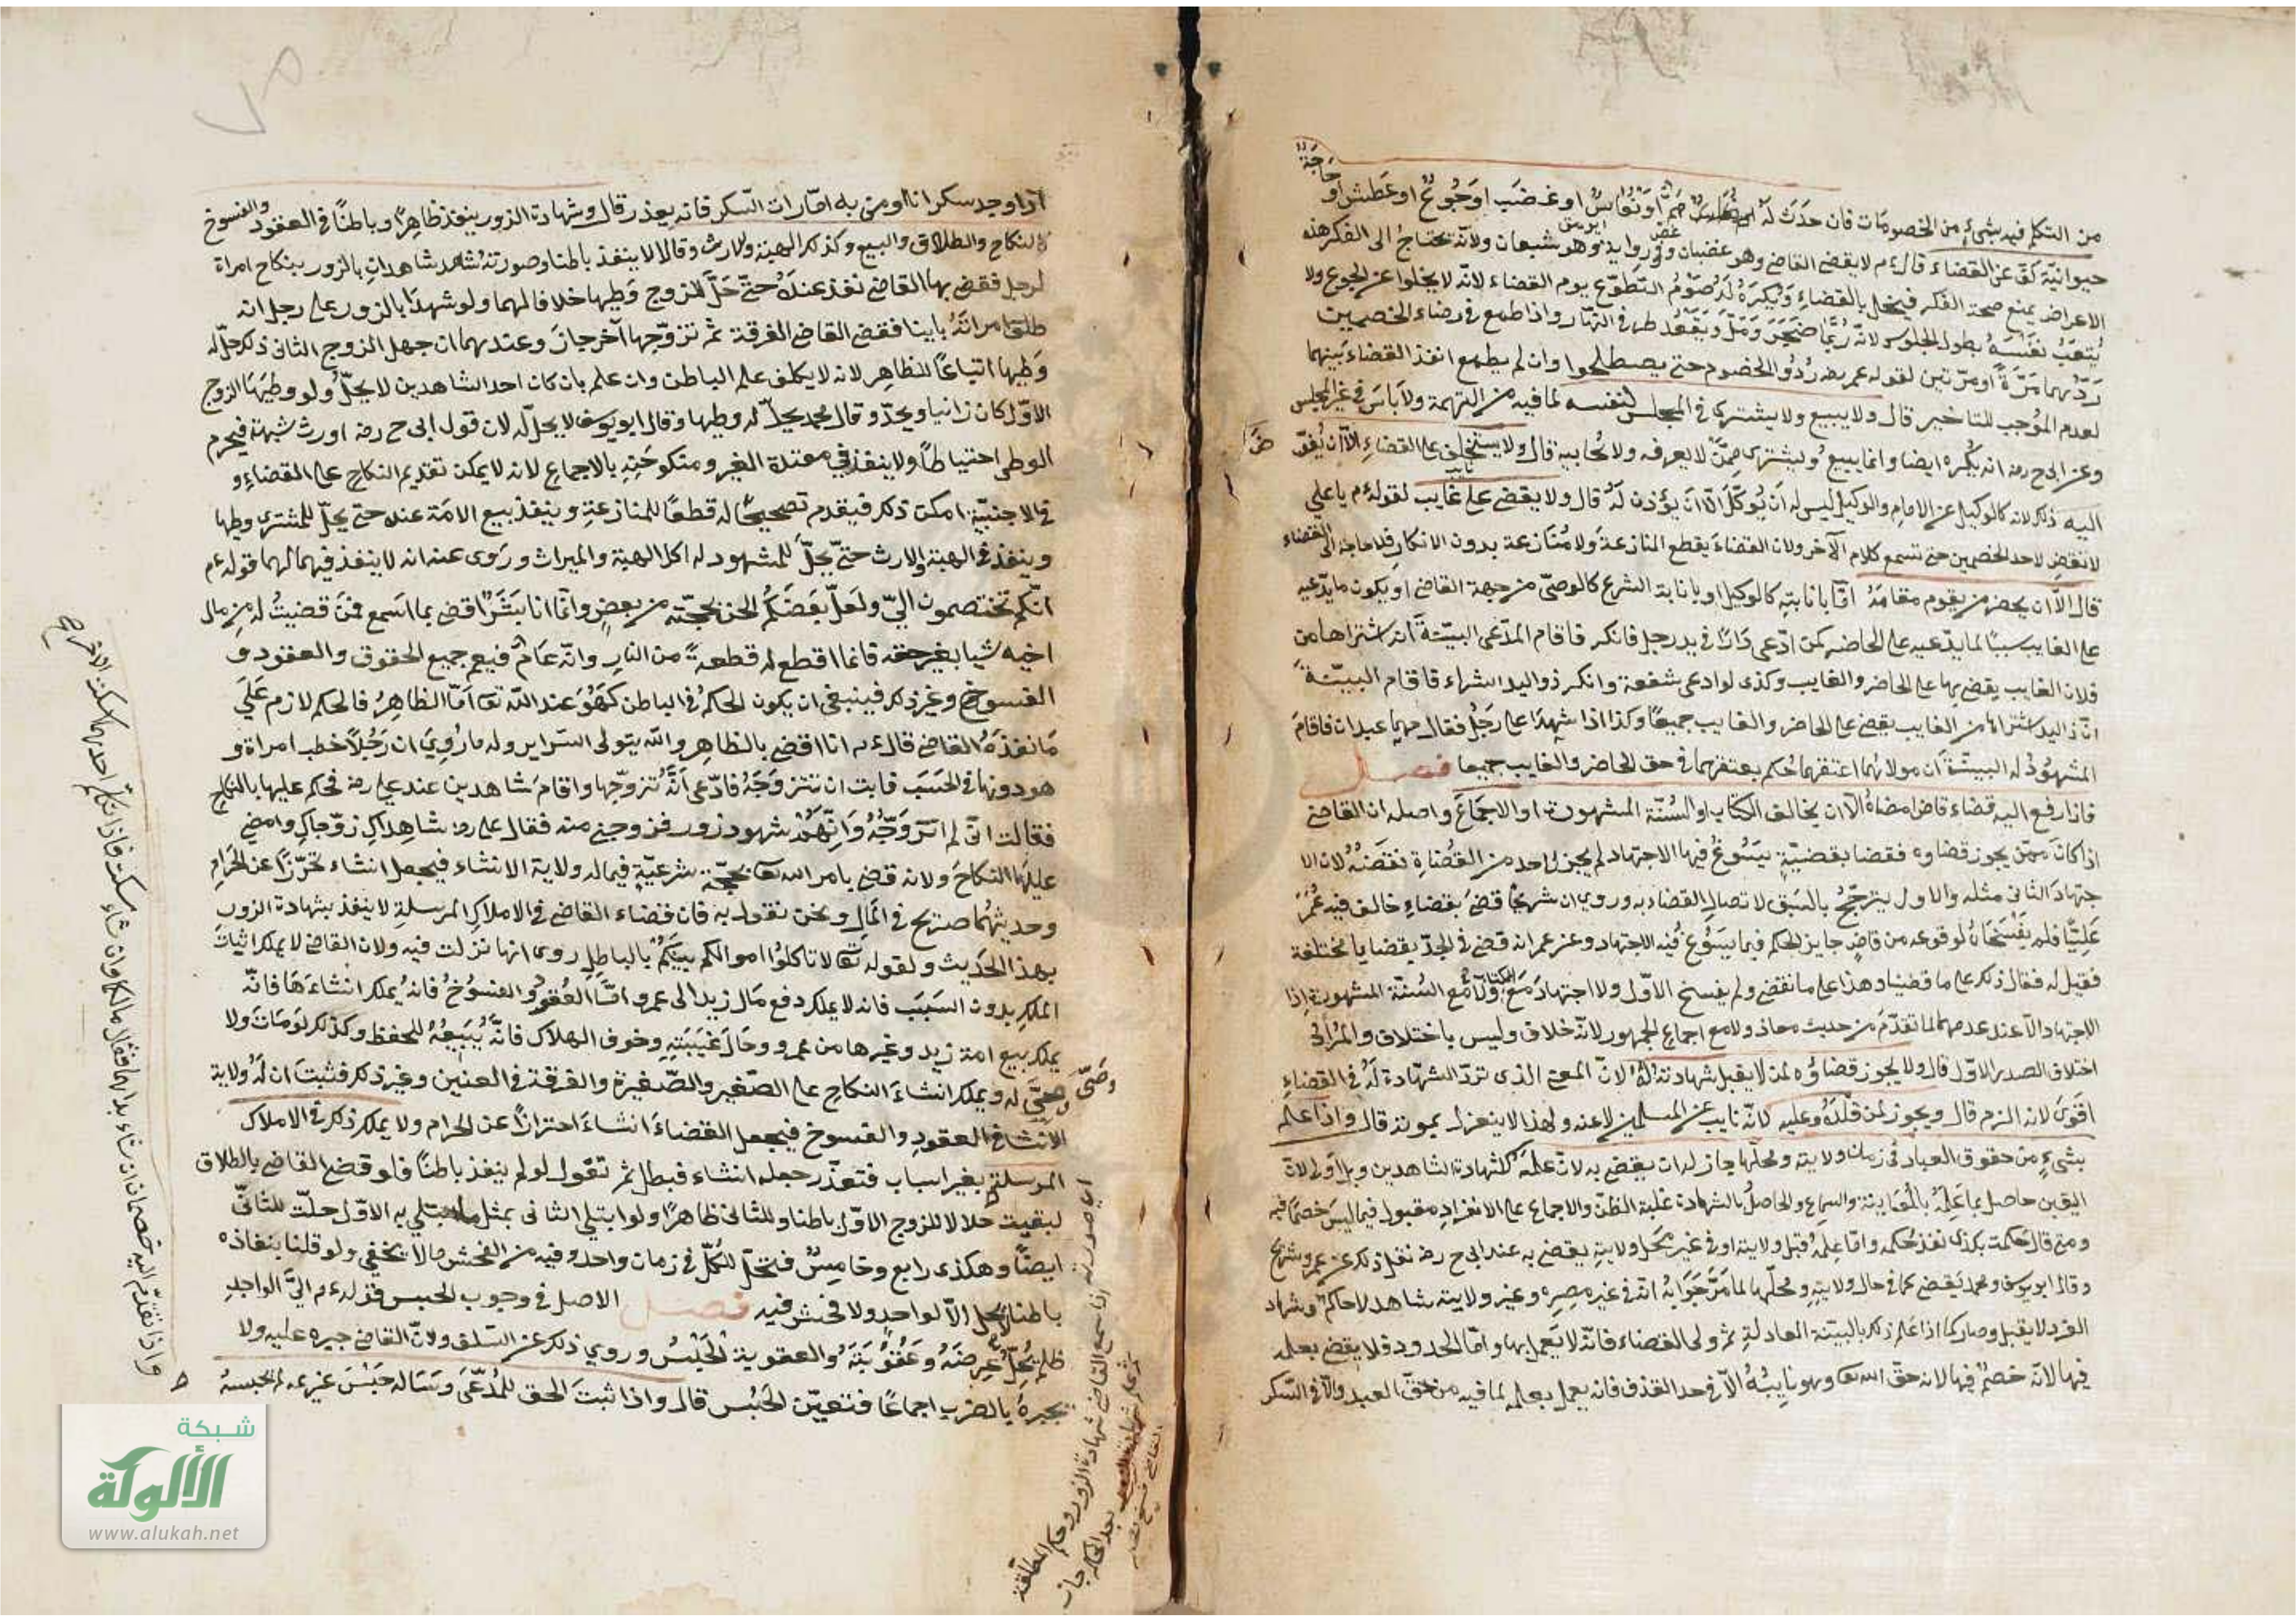 من التكلم فيه بشيء من الخصومات فان حدث له او نعاس او غضب او جوع او عطش او حاجة
حيوانية كف عن القضاء قال ءم لا يقضي القاضي وهو غضبان وفي رواية وهو شبعان ولانه يحتاج الى الفكر وهذه
الاعراض يمنع صحة الفكر فيخل بالقضاء ويكره له صوم التطوع يوم القضاء لانه لا يخلوا عن الجوع ولا
يتعب نفسه بطول الجلوس لانه ربما ضجر ومل ويقعد طرفي النهار واذا طمع في رضاء الخصمين
ردهما مرة او مرتين لقوله عمر رضه ردوا الخصوم حتى يصطلحوا وان لم يطمع انفذ القضاء بينهما
لعدم الموجب للتاخير قال ولا يبيع ولا يشتري في المجلس لنفسه لما فيه من التهمة ولا باس في غير المجلس
وعن ابي ح رضه انه يكره ايضا وانما يبيع ويشتري ممن لا يعرفه ولا يحابيه قال ولا يستخلف على القضاء الا ان يفوض
اليه ذلك لانه كالوكيل عن الامام والوكيل ليس له ان يوكل الا ان يؤذن له قال ولا يقضي على غايب لقوله ءم يا علي
لا تقض لاحد الخصمين حتى تسمع كلام الآخر ولان القضاء يقطع المنازعة ولا منازعة بدون الانكار فلا حاجة الى القضاء
قال الا ان يحضر من يقوم مقامه اما بانابته كالوكيل او بانابة الشرع كالوصي من جهة القاضي او يكون ما يدعيه
على الغايب سببا لما يدعيه على الحاضر كمن ادعى دارا في يد رجل فانكر فاقام المدعي البينة انه اشتراها من
فلان الغايب يقضي بها على الحاضر والغايب وكذى لو ادعى شفعة وانكر ذو اليد الشراء فاقام البينة
ان ذا اليد اشتراه من الغايب يقضي على الحاضر والغايب جميعا وكذا اذا شهدا على رجل فقال هما عبدان فاقام
المشهود له البينة ان مولاهما اعتقهما يحكم بعتقهما في حق الحاضر والغايب جميعا فصل
فاذا رفع اليه قضاء قاض امضاه الا ان يخالف الكتاب او السنة المشهورة او الاجماع واصله ان القاضي
اذا كان ممن يجوز قضاوه فقضا بقضية يسوغ فيها الاجتهاد لم يجز لاحد من القضاة نقضه لان الا
جتهاد الثاني مثله والاول يترجح بالسبق لاتصال القضاء به وروي ان شريحا قضى بقضاء خالف فيه عمر
عليا فلم يفسخاه لوقوعه من قاض جايز الحكم فيما يسوغ فيه الاجتهاد وعن عمر انه قضى في الجد بقضايا مختلفة
فقيل له فقال ذلك على ما قضينا وهذا على ما نقضي ولم يفسخ الاول ولا اجتهاد مع الكتاب ولا مع السنة المشهورة اذا
الاجتهاد الا عند عدمهما لما تقدم من حديث معاذ ولا مع اجماع الجمهور لانه خلاف وليس باختلاف والمراد
اختلاف الصدر الاول قال ولا يجوز قضاؤه لمن لا يقبل شهادته له لان المعنى الذي ترد الشهادة له في القضاء
اقوى لانه الزم قال ويجوز لمن قلده وعليه لانه نايب عن المسلمين لا عنه ولهذا لا ينعزل بموته قال واذا علم
بشيء من حقوق العباد في زمان ولايته ومحلها جاز له ان يقضي به لان علمه كشهادة الشاهدين وبل اولى لان
اليقين حاصل بما علمه بالمعاينة والسماع والحاصل بالشهادة غلبة الظن والاجماع على الانفراد مقبول فيما ليس خصما فيه
ومتى قال حكمت بكذى نفذ حكمه واما علمه قبل ولايته او في غير محل ولايته يقضي به عند ابي ح رضه نقل ذلك عن عمر وشريح
وقال ابو يوسف ومحمد يقضي كما في حال ولايته ومحلها لما مر جوابه انه في غير مصره وغير ولايته شاهد لا حاكم وشهادة
الفرد لا يقبل وصار كما اذا علم ذلك بالبينة العادلة ثم ولي القضاء فانه لا يعمل بها واما الحدود فلا يقضي بعلمه
فيها لانه خصم فيها لانه حق الله تعا وهو نايبه الا في حد القذف فانه يعمل بعلمه لما فيه من حق العبد والا في السكر
اذا وجد سكرانا او متى به امارات السكر فانه يعذر قال وشهادة الزور ينفذ ظاهرا وباطنا في العقود والفسوخ
كالنكاح والطلاق والبيع وكذلك الهبة والارث وقالا لا ينفذ باطنا وصورته شهد شاهدان بالزور بنكاح امراة
لرجل فقضى بها القاضي نفذ عنده حتى حل للزوج وطيها خلافا لهما ولو شهدا بالزور على رجل انه
طلق امراته باينا فقضى القاضي الفرقة ثم تزوجها آخر جاز وعندهما ان جهل الزوج الثاني ذلك حل له
وطيها اتباعا للظاهر لانه لا يكلف علم الباطن وان علم بان كان احد الشاهدين لا يحل ولو وطيها الزوج
الاول كان زانيا ويحد وقال محمد يحل له وطيها وقال ابو يوسف لا يحل له لان قول ابي ح رضه اورث شبهة فيحرم
الوطي احتياطا ولا ينفذ في معتدة الغير ومنكوحته بالاجماع لانه لا يمكن تقديم النكاح على القضاء و
في الاجنبية امكن ذلك فيقدم تصحيحا له قطعا للمنازعة وينفذ بيع الامة عنده حتى يحل للمشتري وطيها
وينفذ في الهبة والارث حتى يحل للمشهود له اكل الهبة والميراث وروى عنه انه لا ينفذ فيهما لهما قوله ءم
انكم تختصمون الي ولعل بعضكم الحن بحجته من بعض وانما انا بشر اقضي بما اسمع فمن قضيت له من مال
اخيه شيا بغير حقه فانما اقطع له قطعة من النار وانه عام فيعم جميع الحقوق والعقود و
الفسوخ وغير ذلك فينبغي ان يكون الحكم في الباطن كهو عند الله تعا اما الظاهر فالحكم لازم على
ما نفذه القاضي قال ءم انا اقضي بالظاهر والله يتولى السراير وله ما روي ان رجلا خطب امراة و
هو دونها في الحسب فابت ان تتزوجه فادعى انه تزوجها واقام شاهدين عند علي رضه فحكم عليها بالنكاح
فقالت اني لم اتزوجه وانهم شهود زور فزوجني منه فقال علي رضه شاهداك زوجاك وامضى
عليها النكاح ولانه قضى بامر الله تعا بحجة شرعية فيما له ولاية الانشاء فيجعل انشاء تحرزا عن الحرام
وحديثهما صريح في المال ونحن نقول به فان قضاء القاضي في الاملاك المرسلة لا ينفذ بشهادة الزور
بهذا الحديث ولقوله تعا لا تاكلوا اموالكم بينكم بالباطل روى انها نزلت فيه ولان القاضي لا يملك اثبات
الملك بدون السبب فانه لا يملك دفع مال زيد الى عمرو اما العقود والفسوخ فانه يملك انشاءها فانه
يملك بيع امة زيد وغيرها من عمرو حال غيبته وخوف الهلاك فانه يبيعه للحفظ وكذلك لو مات ولا
وصي له ويملك انشاء النكاح على الصغير والصغيرة والفرقة في العنين وغير ذلك فثبت ان له ولاية
الانشاء في العقود والفسوخ فيجعل القضاء انشاء احترازا عن الحرام ولا يملك ذلك في الاملاك
المرسلة بغير اسباب فتعذر جعله انشاء فبطل ثم تقول لو لم ينفذ باطنا فلو قضى القاضي بالطلاق
لبقيت حلالا للزوج الاول باطنا وللثاني ظاهرا ولو ابتلي الثاني بمثل ما ابتلي به الاول حلت للثاني
ايضا وهكذى رابع وخامس فتحل للكل في زمان واحد وفيه من الفحش ما لا يخفى ولو قلنا بنفاذه
باطنا لا يحل الا لواحد ولا فحش فيه فصل الاصل في وجوب الحبس قوله ءم لي الواجد
ظلم يحل عرضه وعقوبته والعقوبة الحبس وروي ذلك عن السلف ولان القاضي جبره عليه ولا
يجبره بالضرب اجماعا فتعين الحبس قال واذا ثبت الحق للمدعي وساله حبس غريمه لم يحبسه
واذا تقدم اليه خصمان ان شاء بداهما فقال ما لكما وان شاء سكت فاذا تكلم احدهما سكت الاخر
اي صورته اذا سمع القاضي شهادة الزور وحكم المطلقة
شبكة
الألوكة
www.alukah.net